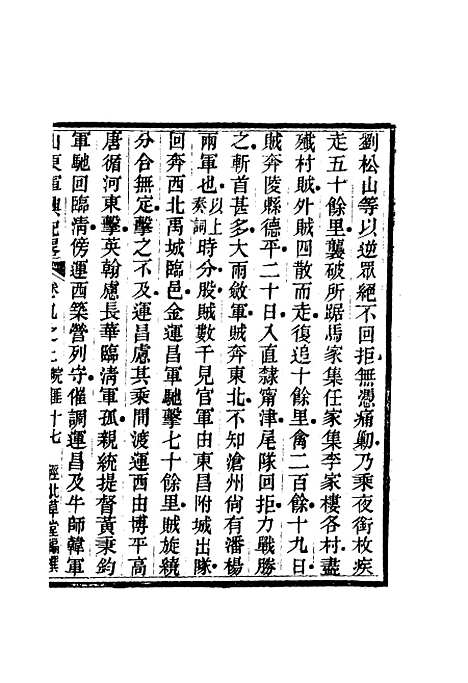 劉松山等以逆眾絕不回拒無憑痛勦乃乘夜銜枚疾
走五十餘里襲破所踞馬家集任家集李家樓各村盡
殲村賊外賊四散而走復追十餘里禽二百餘十九日
賊奔陵縣德平二十日入直隸甯津尾隊回拒力戰勝
之斬首甚多大雨斂軍賊奔東北不知滄州尙有潘楊
兩軍也以上奏詞時分股賊數千見官軍由東昌附城出隊
回奔西北禹城臨邑金運昌軍馳擊七十餘里賊旋繞
分合無定擊之不及運昌慮其乘間渡運西由博平高
唐循河東擊英翰慮長華臨淸軍孤親統提督黃秉鈞
軍馳回臨淸傍運西築營列守催調運昌及牛師韓軍
山東軍興紀畧 卷九之二 皖匪十七 經北草堂編撰